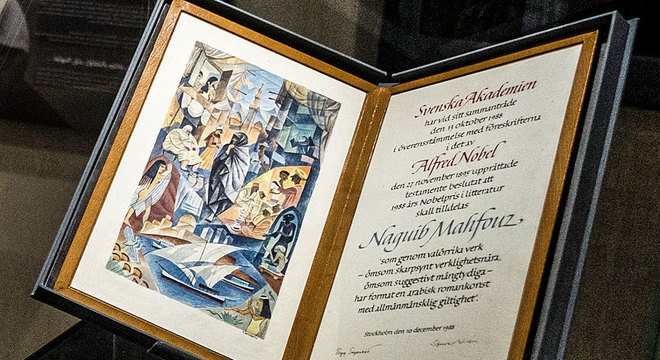 Svenska Akademien
har vid sitt sammanträde
den 13 oktober 1988
i överensstämmelse med föreskrifterna
i det av
Alfred Nobel
den 27 november 1895 upprättade
testamente beslutat att
1988 års Nobelpris i litteratur
skall tilldelas
Naguib Mahfouz,
'som genom valörrika verk
– ömsom skarpsynt verklighetsnära,
ömsom suggestivt mångtydiga –
har format en arabisk romankonst
med allmänmänsklig giltighet'.
Stockholm den 10 december 1988